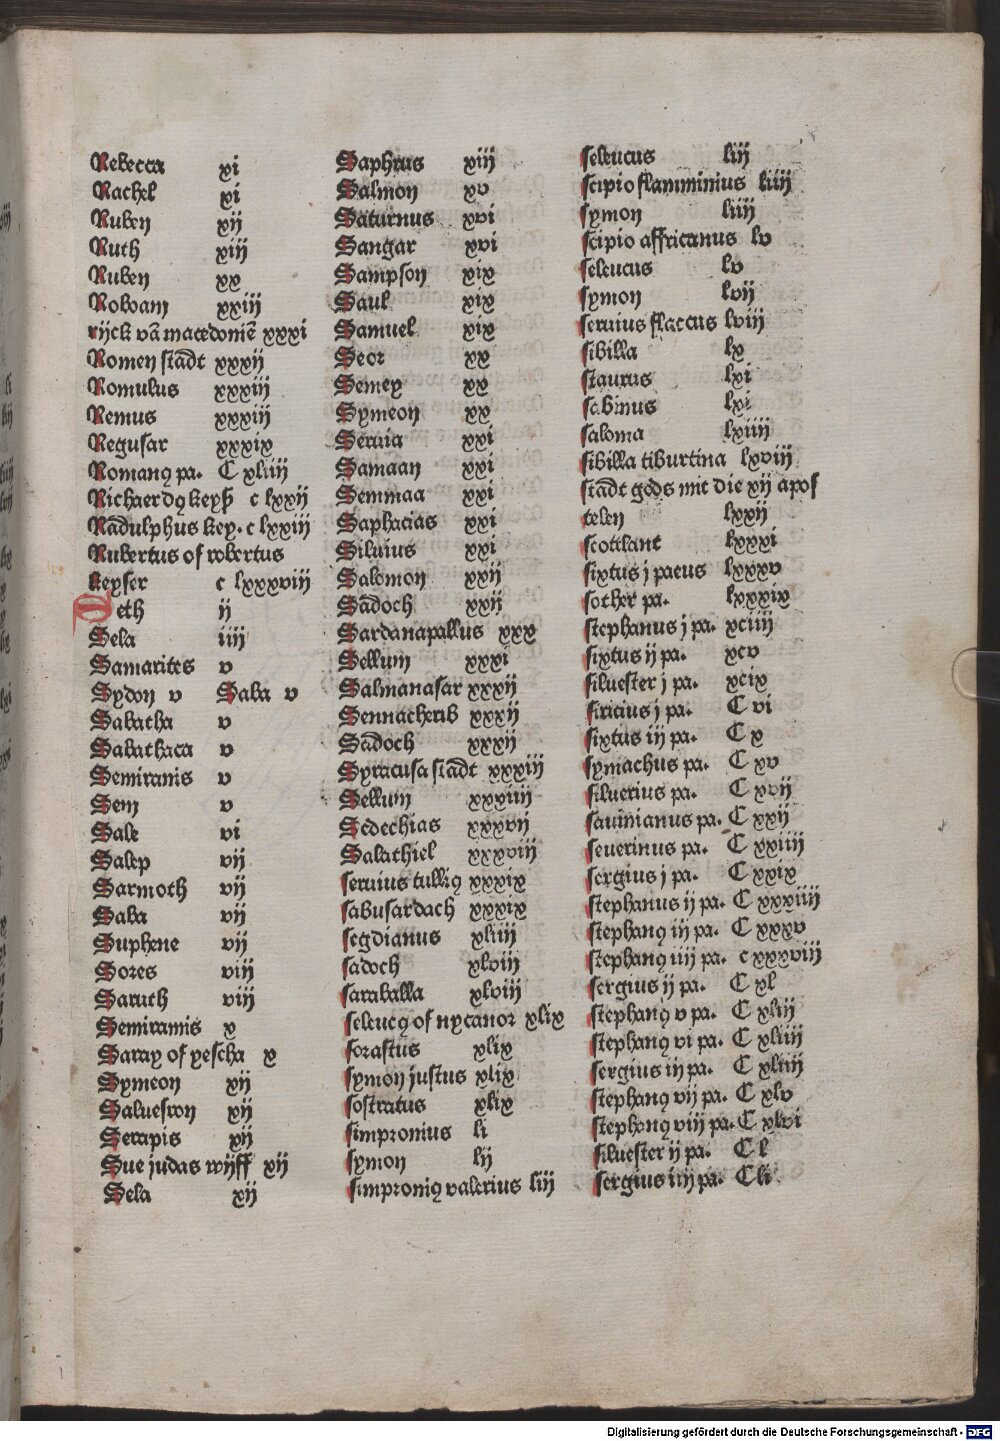 Rebecca xi
Rachel xi
Ruben xij
Ruth xiij
Ruben xx
Roboam xxiij
rijck vā macedoniē xxxi
Romen stadt xxxij
Romulus xxxiij
Remus xxxiij
Regusar xxxix
Romanꝯ pa. C xliiij
Richaerdꝯ keyß c lxxij
Radulphus key. c lxxiij
Rubertus of robertus
keyser c lxxxviij
Seth ij
Sela iiij
Samarites v
Sydon v Saba v
Sabatha v
Sabathaca v
Semiranis v
Sem v
Sale vi
Salep vij
Sarmoth vij
Saba vij
Suphene vij
Sores viij
Saruch viij
Semiramis x
Saray of yescha x
Symeon xij
Serapis xij
Sue judas wijff xij
Sela xij
Saphrus xiij
Salmon xv
Saturnus xvi
Sangar xvi
Sampson xix
Saul xix
Samuel xix
Seor xx
Semey xx
Symeon xx
Seruia xxi
Samaan xxi
Semmaa xxi
Saphacias xxi
Siluius xxi
Salomon xxij
Sadoch xxij
Sardanapallus xxx
Sellum xxxi
Salmanasar xxxij
Sennacherib xxxij
Sadoch xxxij
Syracusa stadt xxxiij
Sellum xxxiiij
Sedechias xxxvij
Salathiel xxxviij
seruius tulliꝯ xxxix
sabusardach xxxix
segdianus xliiij
sadoch xlviij
saraballa xlviij
seleucꝯ of nycanor xlix
sorastus xlix
symon justus xlix
sostratus xlix
simpronius li
symon lij
simproniꝯ valerius liij
seleucus liij
scipio flamminius liiij
symon liiij
scipio affricanus lv
seleucus lv
symon lvij
seruius flaccus lviij
sibilla lx
staurus lxi
sabinus lxi
saloma lxiiij
sibilla tiburtina lxviij
stadt gods mit die xij apos
telen lxxij
scotlant lxxxi
sixtus j paeus lxxxv
sother pa. lxxxix
stephanus j pa. xciiij
sixtus ij pa. xcv
siluester j pa. xcix
siricius j pa. C vi
sixtus iij pa. C x
symachus pa. C xv
siluerius pa. C xvij
sauinianus pa. C xxij
seuerinus pa. C xxiiij
sergius j pa. C xxix
stephanus ij pa. C xxxiiij
stephanꝯ iij pa. C xxxv
stephanꝯ iiij pa. c xxxviij
sergius ij pa. C xl
stephanꝯ v pa. C xlij
stephanꝯ vi pa. C xliiij
sergius iij pa. C xliiij
stephanꝯ vij pa. C xlv
stephanꝯ viij pa. C xlvi
siluester ij pa. C l
sergius iiij pa. C li
Digitalisierung gefördert durch die Deutsche Forschungsgemeinschaft - DFG